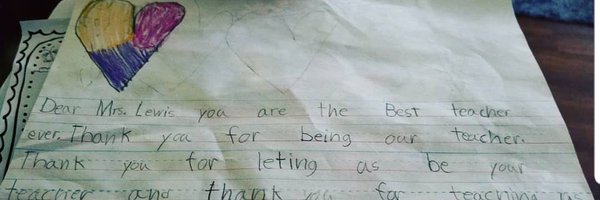 Dear Mrs. Lewis you are the Best teacher
ever. Thank you for being our teacher.
Thank you for leting us be your
teacher and thank you for teaching us